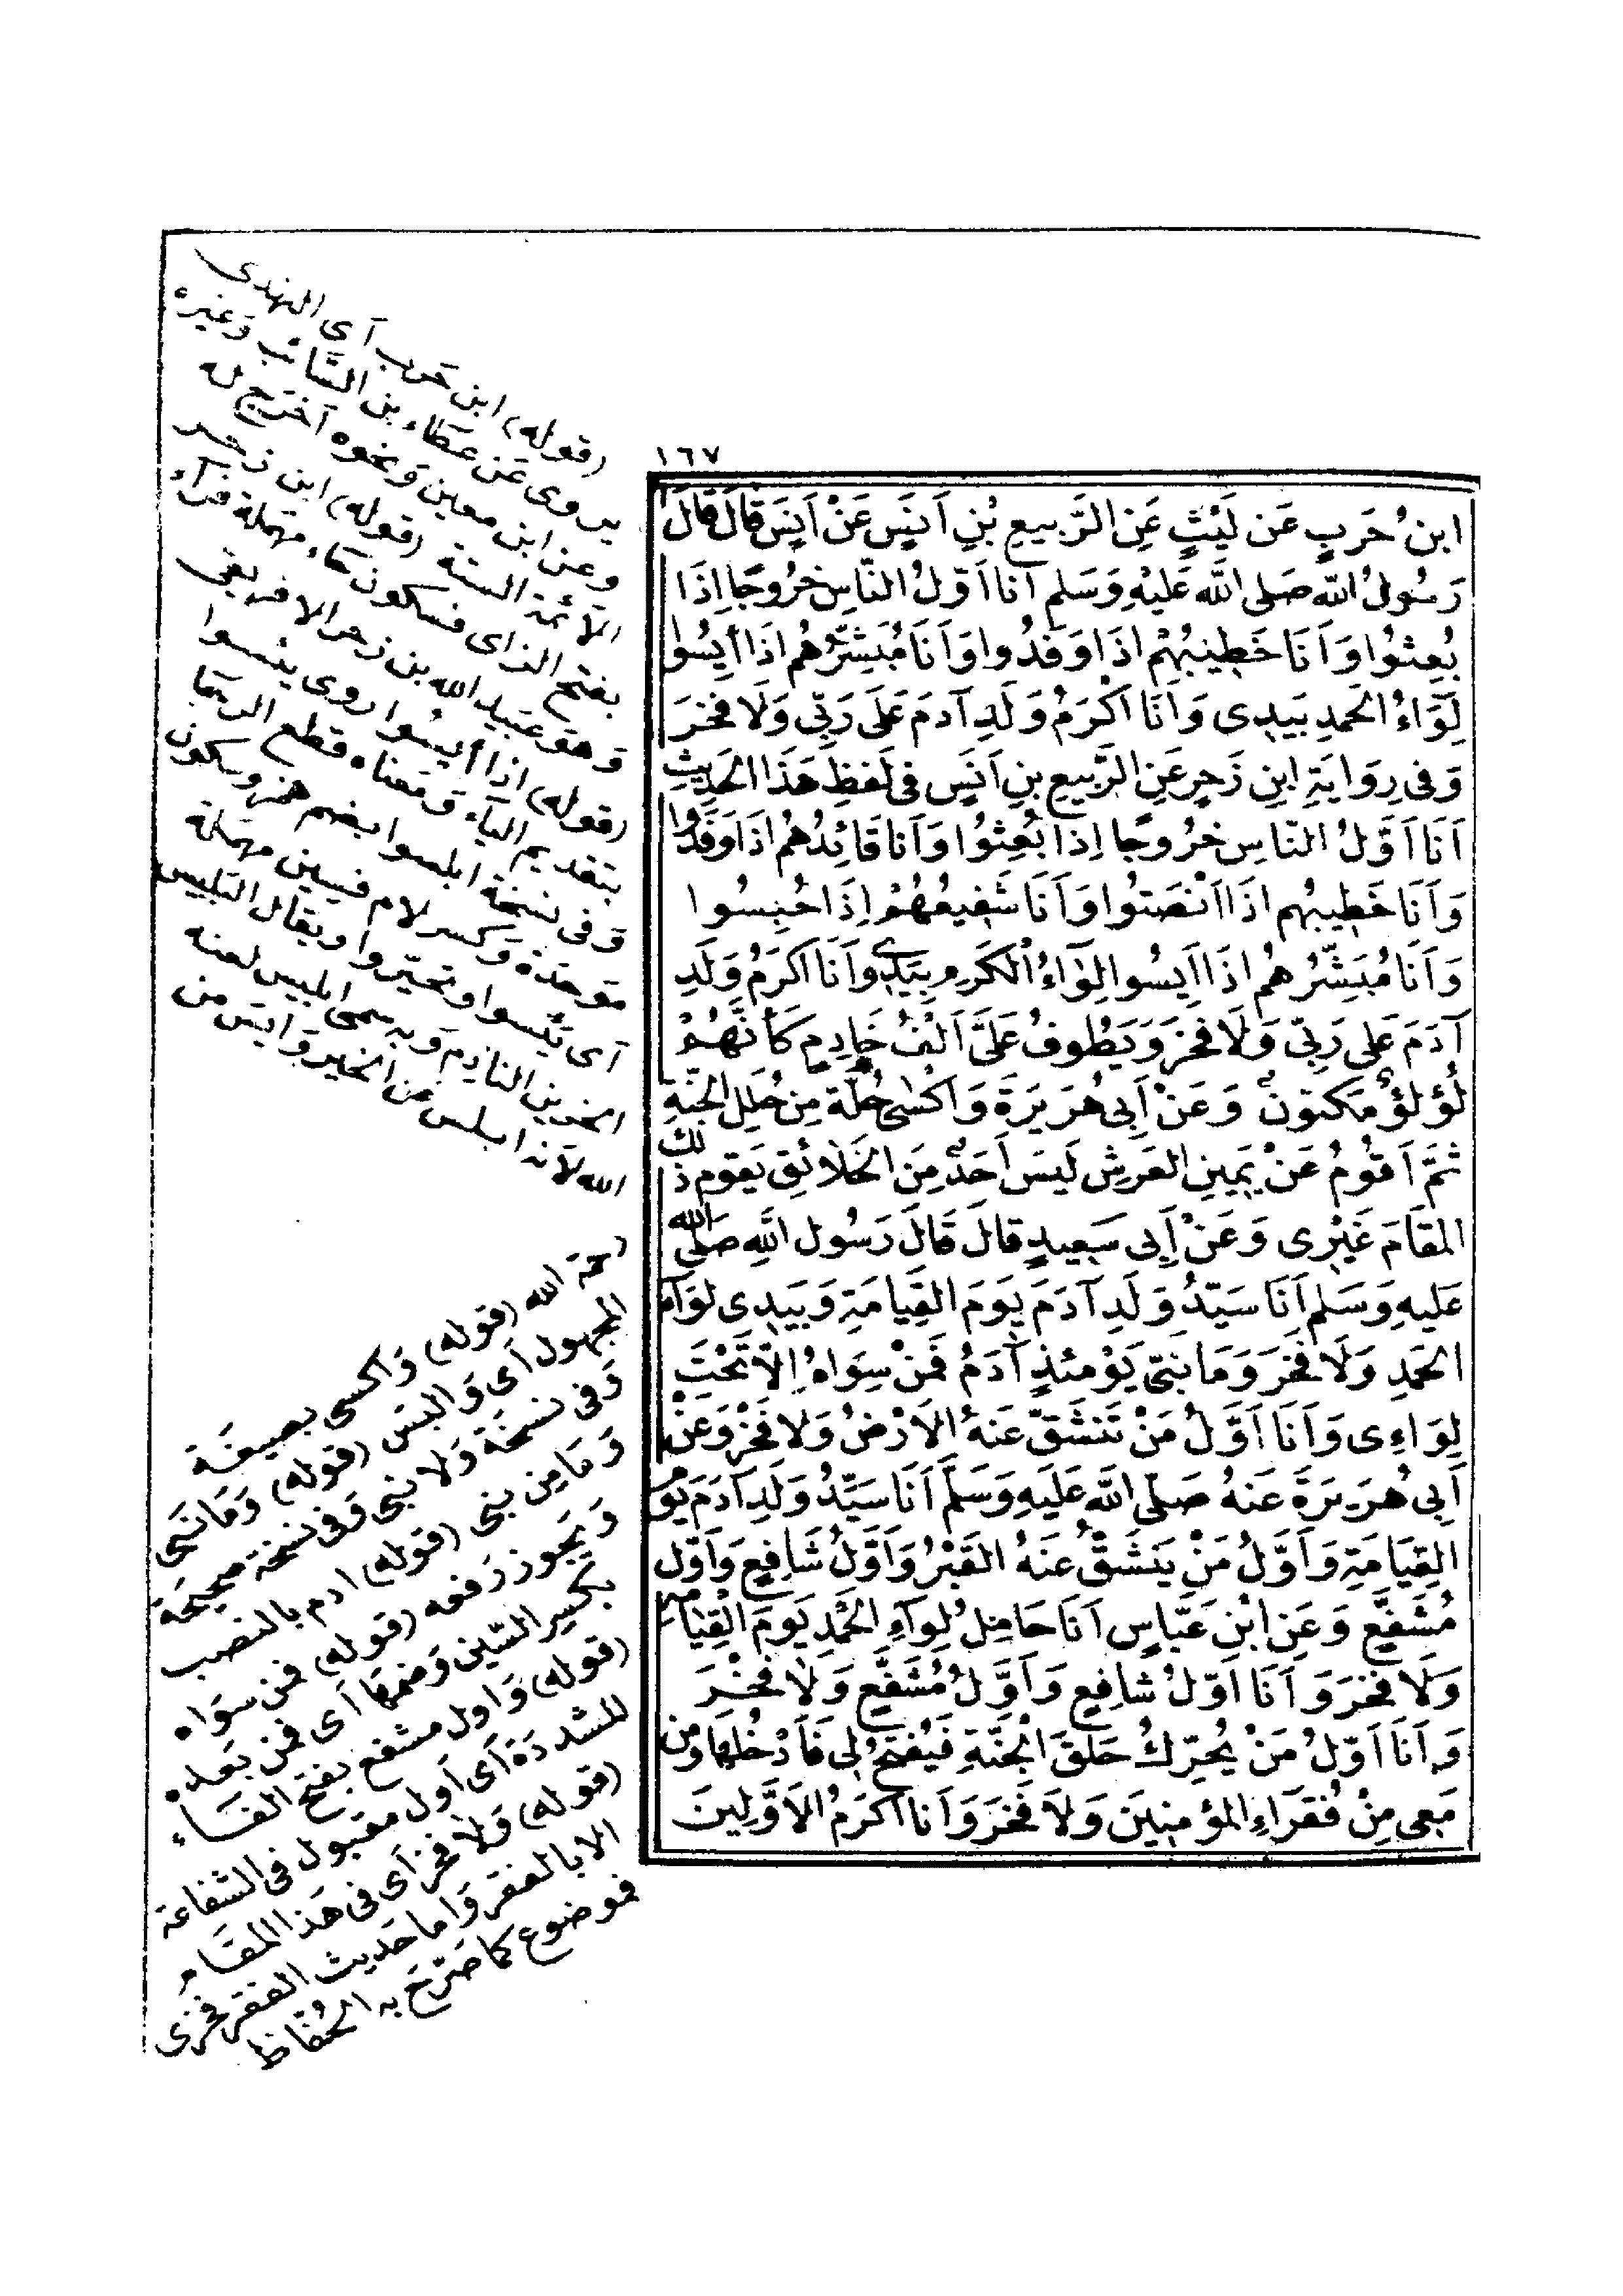 ١٦٧
ابنُ حَرَبٍ عَن لَيْثٍ عَنِ الرَّبيعِ بْنِ اَنَسٍ عَنْ اَنَسٍ قالَ قالَ
رَسُولُ اللهِ صَلى اللَّه عَليْهِ وَسَلم اَنا اَوّلُ النَّاسِ خرُوجًا اِذَا
بُعِثوُا وَاَنَا خَطيبُهُمْ اذَا وَفدُوا وَاَنَا مُبَشِّرُهُم اذَا أَيِسُوا
لِوَاءُ الحَمدِ بَيدِى وَاَنَا اَكْرَمُ وَلَدِ آدمَ عَلَى رَبِّى وَلَا فخرَ
وَفى رِوَايَةِ ابنِ زَحرٍ عَنِ الرَّبيعِ بنِ اَنَسٍ فى لَفظِ هَذَا الحَدِيثِ
اَنَا اَوَّلُ النّاسِ خرُوجًا اِذا بُعِثوُا وَاَنا قَائِدُهُم اذَا وَفَدُوا
وَاَنَا خَطِيبهُم اذَا اَنْصَتوُا وَاَنَا شَفِيعُهُمْ اِذَا حُبِسُوا
وَاَنَا مُبَشِّرُهُم اذَا اَيِسُوا لِوَاءُ الْكَرَمِ بِيَدِى وَاَنَا اَكرَمُ وَلَدِ
آدَمَ عَلى رَبِّى وَلَا فخرَ وَيَطُوفُ عَلَىَّ اَلْفُ خَادِمٍ كَأنَّهُمْ
لُؤلؤٌ مَكنوُنٌ وَعَنْ اَبى هُرَيرَةَ وَاُكسٰى حُلّة مِن حُلَلِ الجَنَّةِ
ثمَّ اَقوُمُ عَنْ يَمِينِ العَرشِ لَيسَ اَحَدٌ مِنَ الخَلَائِقِ يَقوم ذلك
المقَامَ غَيْرِى وَعَنْ اَبِى سَعيدٍ قالَ قَالَ رَسُول اللَّهِ صَلى الله
عَليهِ وَسَلم اَنَا سَيِّدُ وَلَدِ آدَمَ يَومَ القِيامَةِ وَبَيدِى لوَاء
الحَمدِ وَلَا فخَرَ وَمَا نبَىّ يَوْمَئذٍ آدَمُ فَمَنْ سِوَاهُ اِلاّ تَحْتَ
لِوَاءِى وَاَنَا اَوَّلُ مَنْ تَنشَقّ عَنهُ الاَرْضُ وَلا فَخْرَ وَعَنْ
اَبِى هُرَيرَةَ عَنهُ صَلّى اللَّه عَلَيهِ وَسَلَّم اَنَا سَيِّدُ وَلَدِ آدَمَ يَوم
القِيَامَةِ وَاَوَّلُ مَنْ يَنشَقُّ عَنهُ القَبْرُ وَاَوَّلُ شَافِعٍ وَاَوّل
مُشَفَّعٍ وَعَنِ ابْنِ عَبّاسٍ اَنَا حَامِلُ لِوَاءِ الحَمْدِ يَومَ القِيَامَة
وَلَا فخَرَ وَاَنَا اوّلُ شافِعٍ وَاَوَّلُ مُشَفَّعٍ وَلَا فخْرَ
وَاَنَا اَوّلُ مَنْ يُحَرِّكُ حَلَقَ الْجَنَّةِ فَيُفتَحُ لِى فَاَدْخُلها وَمن
مَعِى مِنْ فُقَرَاءِ المؤمنِينَ وَلاَ فَخَرَ وَاَنا اَكرَمُ الاَوَّلِينَ
(قوله) ابن حَرب اَى النهدى
يروى عَن عَطاء بن السَّائب وَغيره
وعن ابن معين وَنحوه اَخرَج له
الاَئمة الستة (قوله) ابن زحر
بفتح الزاى فسكون حَاء مهملة فراء
وَهوَ عبَيد الله بن زحر الافريقى
(قوله) اذا أيسُوا روى يئسوا
بتقديم الياء وَمَعناه قطع الرجَا
وَفى نسخة ابلسوا بضم همز وسكون
موَحدَة وَكسر لام فسين مهملة
اَى يَئسوا وتحيّروا ويقال المبلس
الحزين النادم وَبه سمى ابليس لعنه
الله لاَنه ابلس عن الخير وَايسَ من
رحمة الله (قوله) وَاكسى بصيغَة
المجهول اَى وَالبسَ (قوله) وَمَا نبَى
وَفى نسخَة وَلا نبى وَفى نسخة صَحيحَة
وَمَا مِن نبى (قوله) ادم بالنصب
وَيجوز رَفعه (قوله) فمن سوَاه
بكسر السّين وَضمهَا اَى فمَن بَعده
(قوله) وَاول مشفع بفتحَ الفَاء
المشددَة اَى اَول مقبول فى الشفاعَة
(قوله) وَلاَ فخر اَى فى هَذا المقَام
الا بالفقر وَاما حَديث الفقر فخرى
فموضوع كما صَرّحَ به الحُفّاظ